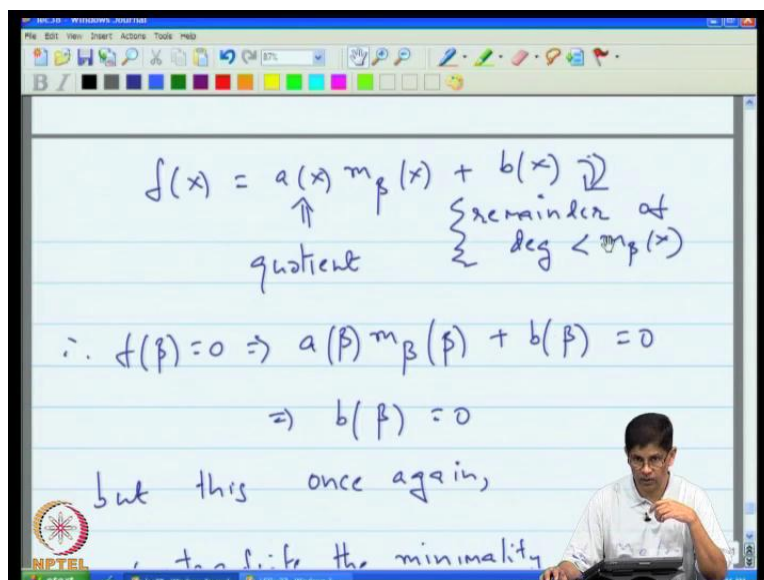 lec38 - Windows Journal
File Edit View Insert Actions Tools Help
87%
B I
f(x) = a(x) m_β(x) + b(x)
⇑ ⇓
quotient { remainder of
deg < m_β(x)
∴ f(β) = 0 ⇒ a(β) m_β(β) + b(β) = 0
⇒ b(β) = 0
but this once again,
the minimality
NPTEL